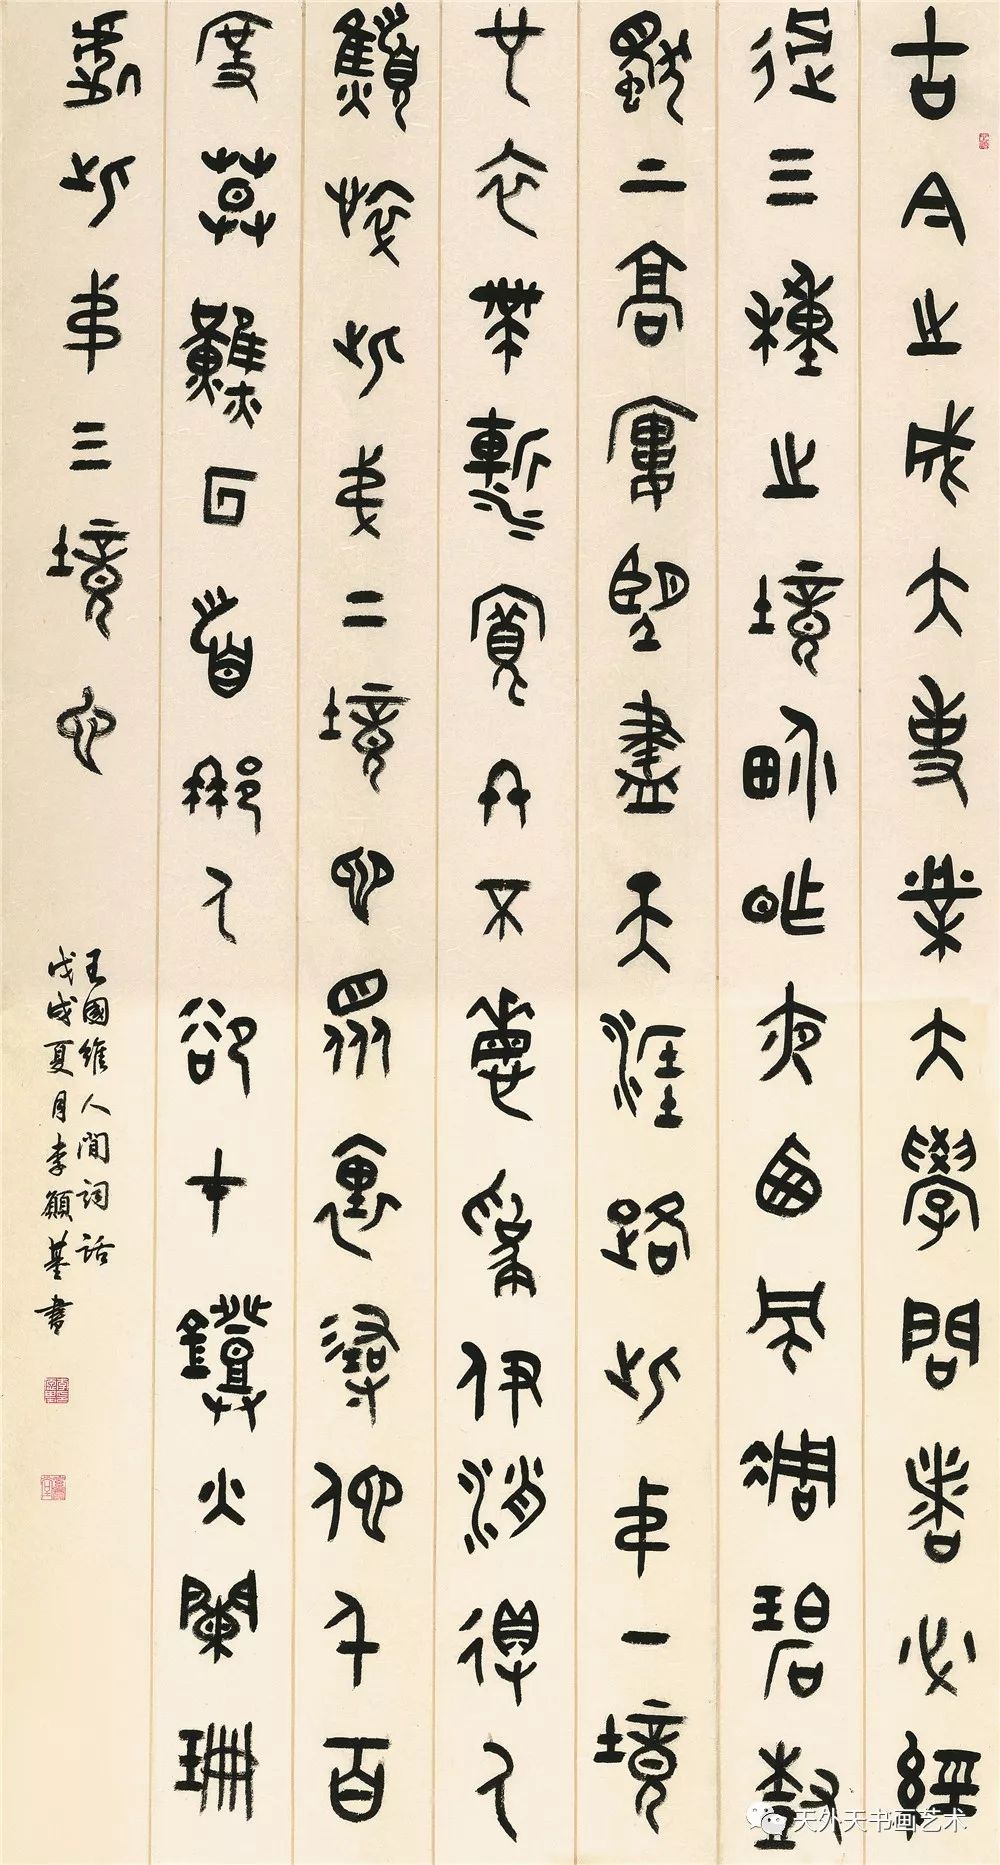 古今之成大事業大學問者必經
過三種之境界昨夜西風凋碧樹
獨上高樓望盡天涯路此第一境
也衣帶漸寬終不悔為伊消得人
憔悴此第二境也眾裡尋他千百
度驀然回首那人卻在燈火闌珊
處此第三境也
王國維人間詞話
戊戌夏月李書
天外天书画艺术